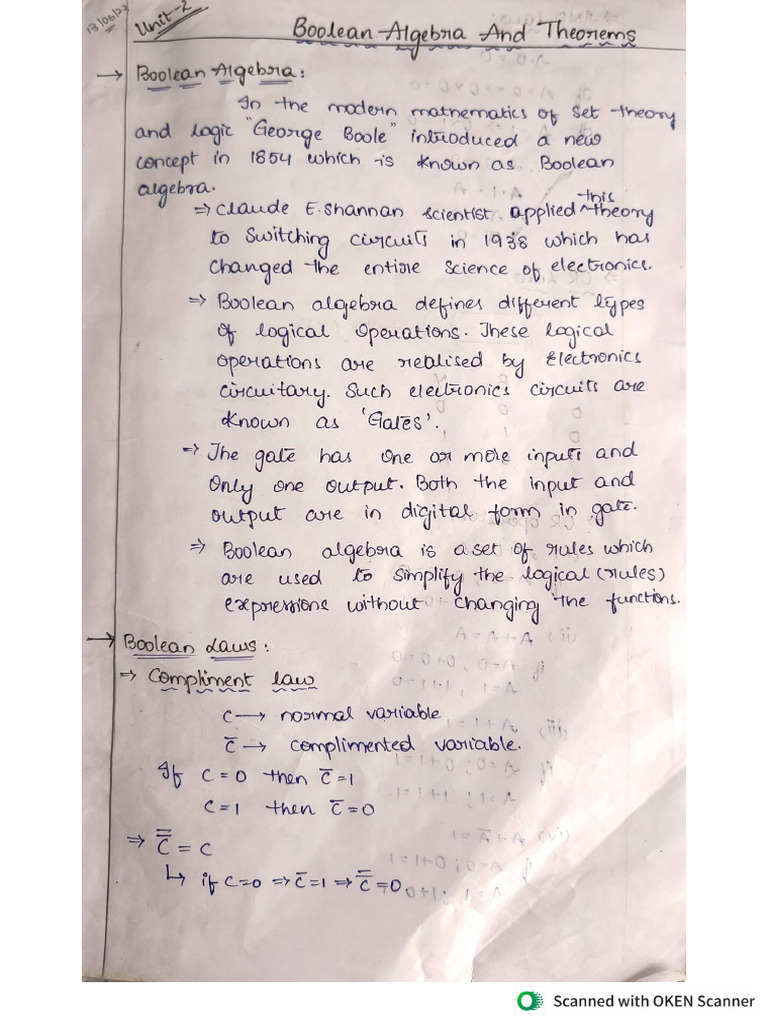 13/06/23
Unit-2
Boolean Algebra And Theorems
→ Boolean Algebra:
In the modern mathematics of Set theory
and logic "George Boole" introduced a new
concept in 1854 which is known as Boolean
algebra.
⇒ Claude E. Shannan scientist applied ^this theory
to switching circuits in 1938 which has
changed the entire science of electronics.
⇒ Boolean algebra defines different types
of logical operations. These logical
operations are realised by Electronics
circuitary. Such electronics circuits are
known as 'Gates'.
⇒ The gate has one or more inputs and
only one output. Both the input and
output are in digital form in gate.
⇒ Boolean algebra is a set of rules which
are used to simplify the logical (rules)
expressions without changing the functions.
→ Boolean Laws:
→ Compliment law
C → normal variable
C̅ → complimented variable.
If C = 0 then C̅ = 1
C = 1 then C̅ = 0
⇒ C̿ = C
↳ if C=0 ⇒ C̅=1 ⇒ C̿=0
Scanned with OKEN Scanner